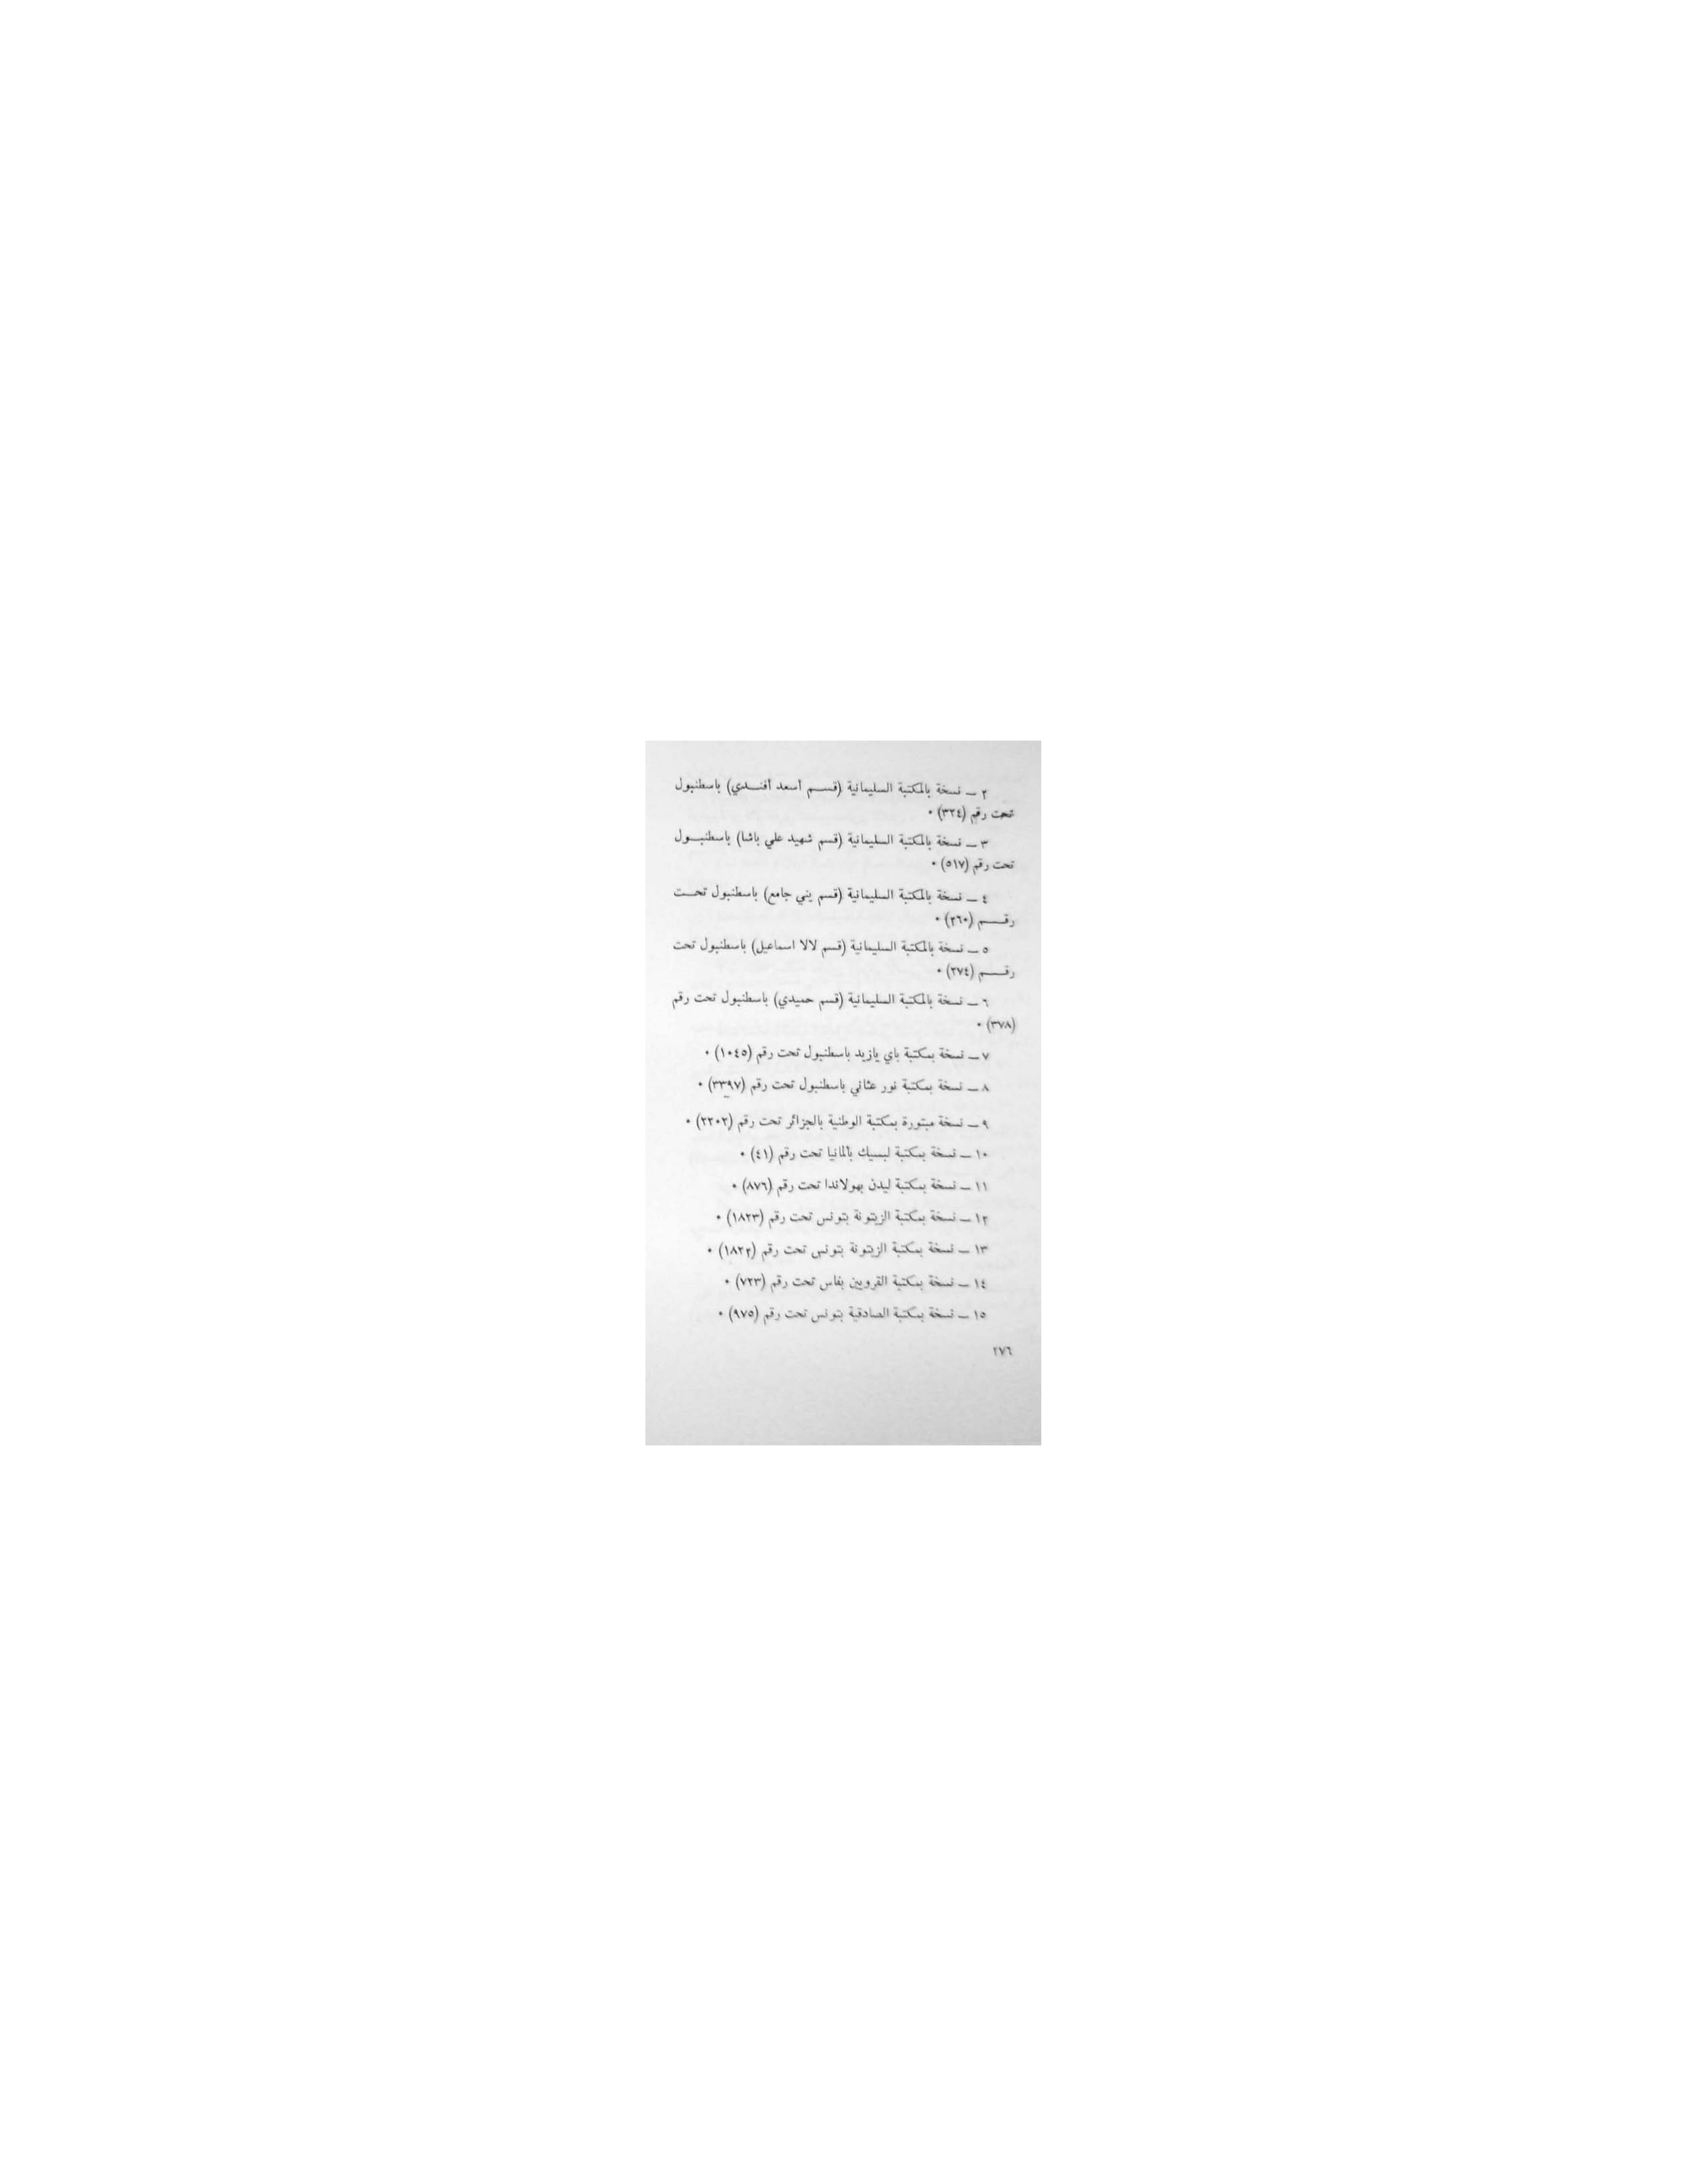 ٢ ــ نسخة بالمكتبة السليمانية (قســم أسعد أفنــدي) باسطنبول
تحت رقم (٣٢٤) ٠
٣ ــ نسخة بالمكتبة السليمانية (قسم شهيد علي باشا) باسطنبــول
تحت رقم (٥١٧) ٠
٤ ــ نسخة بالمكتبة السليمانية (قسم يني جامع) باسطنبول تحــت
رقــــم (٢٦٠) ٠
٥ ــ نسخة بالمكتبة السليمانية (قسم لالا اسماعيل) باسطنبول تحت
رقــــم (٢٧٤) ٠
٦ ــ نسخة بالمكتبة السليمانية (قسم حميدي) باسطنبول تحت رقم
(٣٧٨) ٠
٧ ــ نسخة بمكتبة باي يازيد باسطنبول تحت رقم (١٠٤٥) ٠
٨ ــ نسخة بمكتبة نور عثاني باسطنبول تحت رقم (٣٣٩٧) ٠
٩ ــ نسخة مبتورة بمكتبة الوطنية بالجزائر تحت رقم (٢٣٠٢) ٠
١٠ ــ نسخة بمكتبة لبسيك بألمانيا تحت رقم (٤١) ٠
١١ ــ نسخة بمكتبة ليدن بهولاندا تحت رقم (٨٧٦) ٠
١٢ ــ نسخة بمكتبة الزيتونة بتونس تحت رقم (١٨٢٣) ٠
١٣ ــ نسخة بمكتبة الزيتونة بتونس تحت رقم (١٨٢٢) ٠
١٤ ــ نسخة بمكتبة القرويين بفاس تحت رقم (٧٢٣) ٠
١٥ ــ نسخة بمكتبة الصادقية بتونس تحت رقم (٩٧٥) ٠
٢٧٦